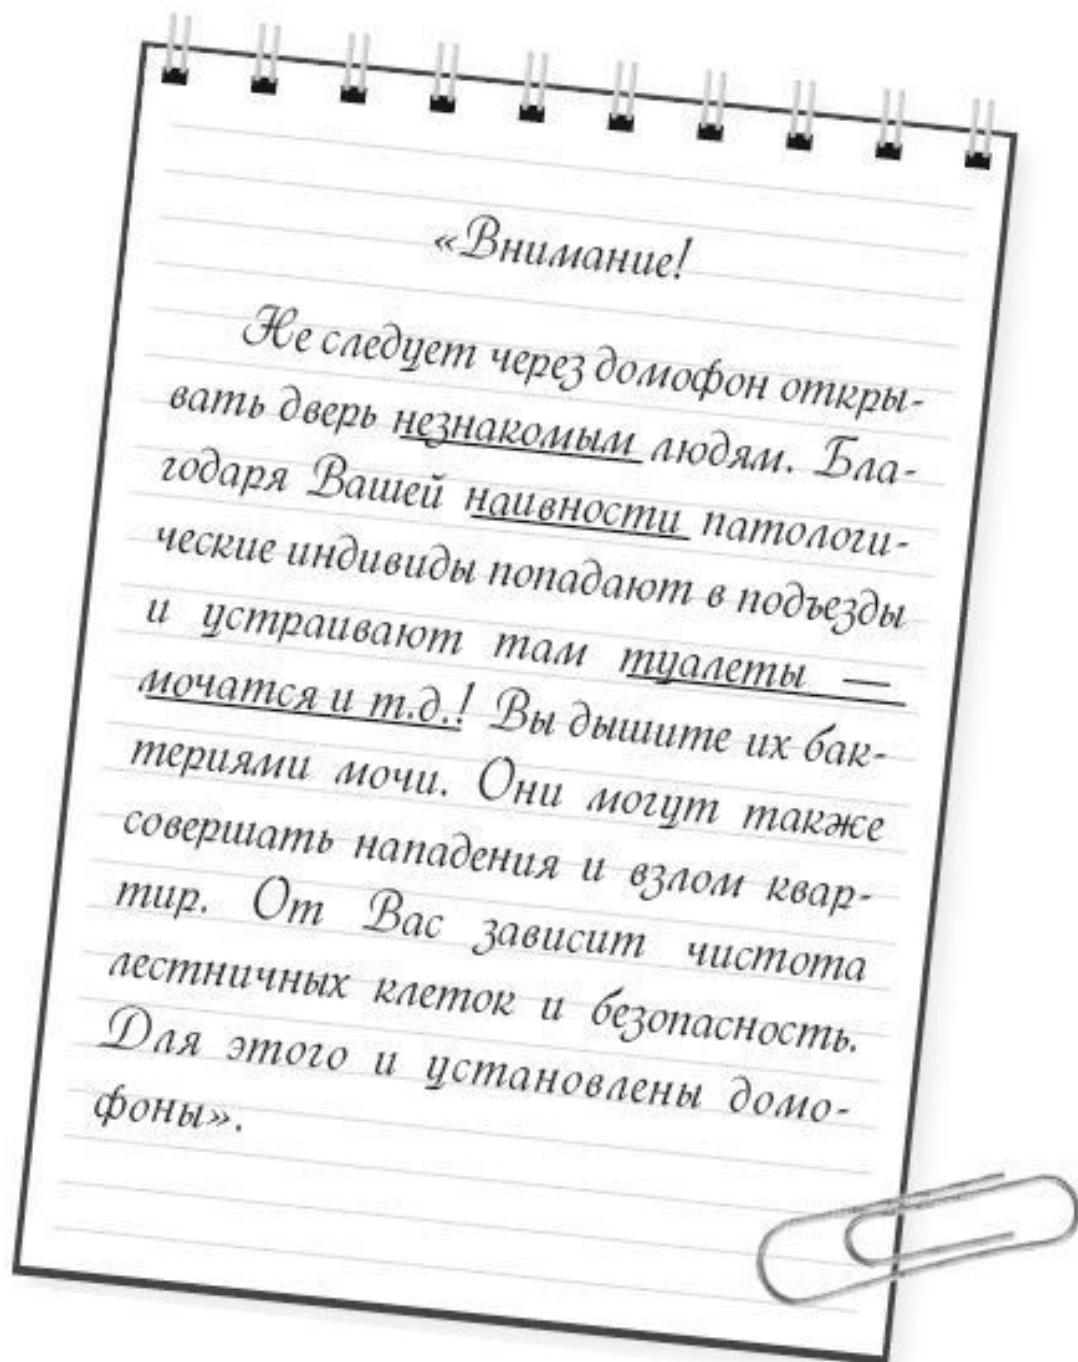 «Внимание!
Не следует через домофон откры-
вать дверь незнакомым людям. Бла-
годаря Вашей наивности патологи-
ческие индивиды попадают в подъезды
и устраивают там туалеты —
мочатся и т.д.! Вы дышите их бак-
териями мочи. Они могут также
совершать нападения и взлом квар-
тир. От Вас зависит чистота
лестничных клеток и безопасность.
Для этого и установлены домо-
фоны».